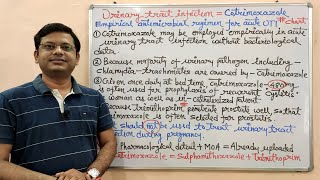 Urinary tract infection = Cotrimoxazole
Empirical antimicrobial regimen for acute UTI * chart
① Cotrimoxazole may be employed empirically in acute
urinary tract infection without bacteriological
data.
② Because majority of urinary pathogen including -
chlamydia-trachomatis are covered by - Cotrimoxazole
③ Cotrimoxazole - 480mg
is often used for prophylaxis of recurrent cystitis-
women as well as in catheterized patient
Because trimethoprim penetrate prostate well so that
Cotrimoxazole is often selected for prostatis.
should not be used to treat urinary tract
infection during pregnancy.
Pharmacological detail + MoA = Already uploaded
Cotrimoxazole = Sulphamethoxazole + Trimethoprim